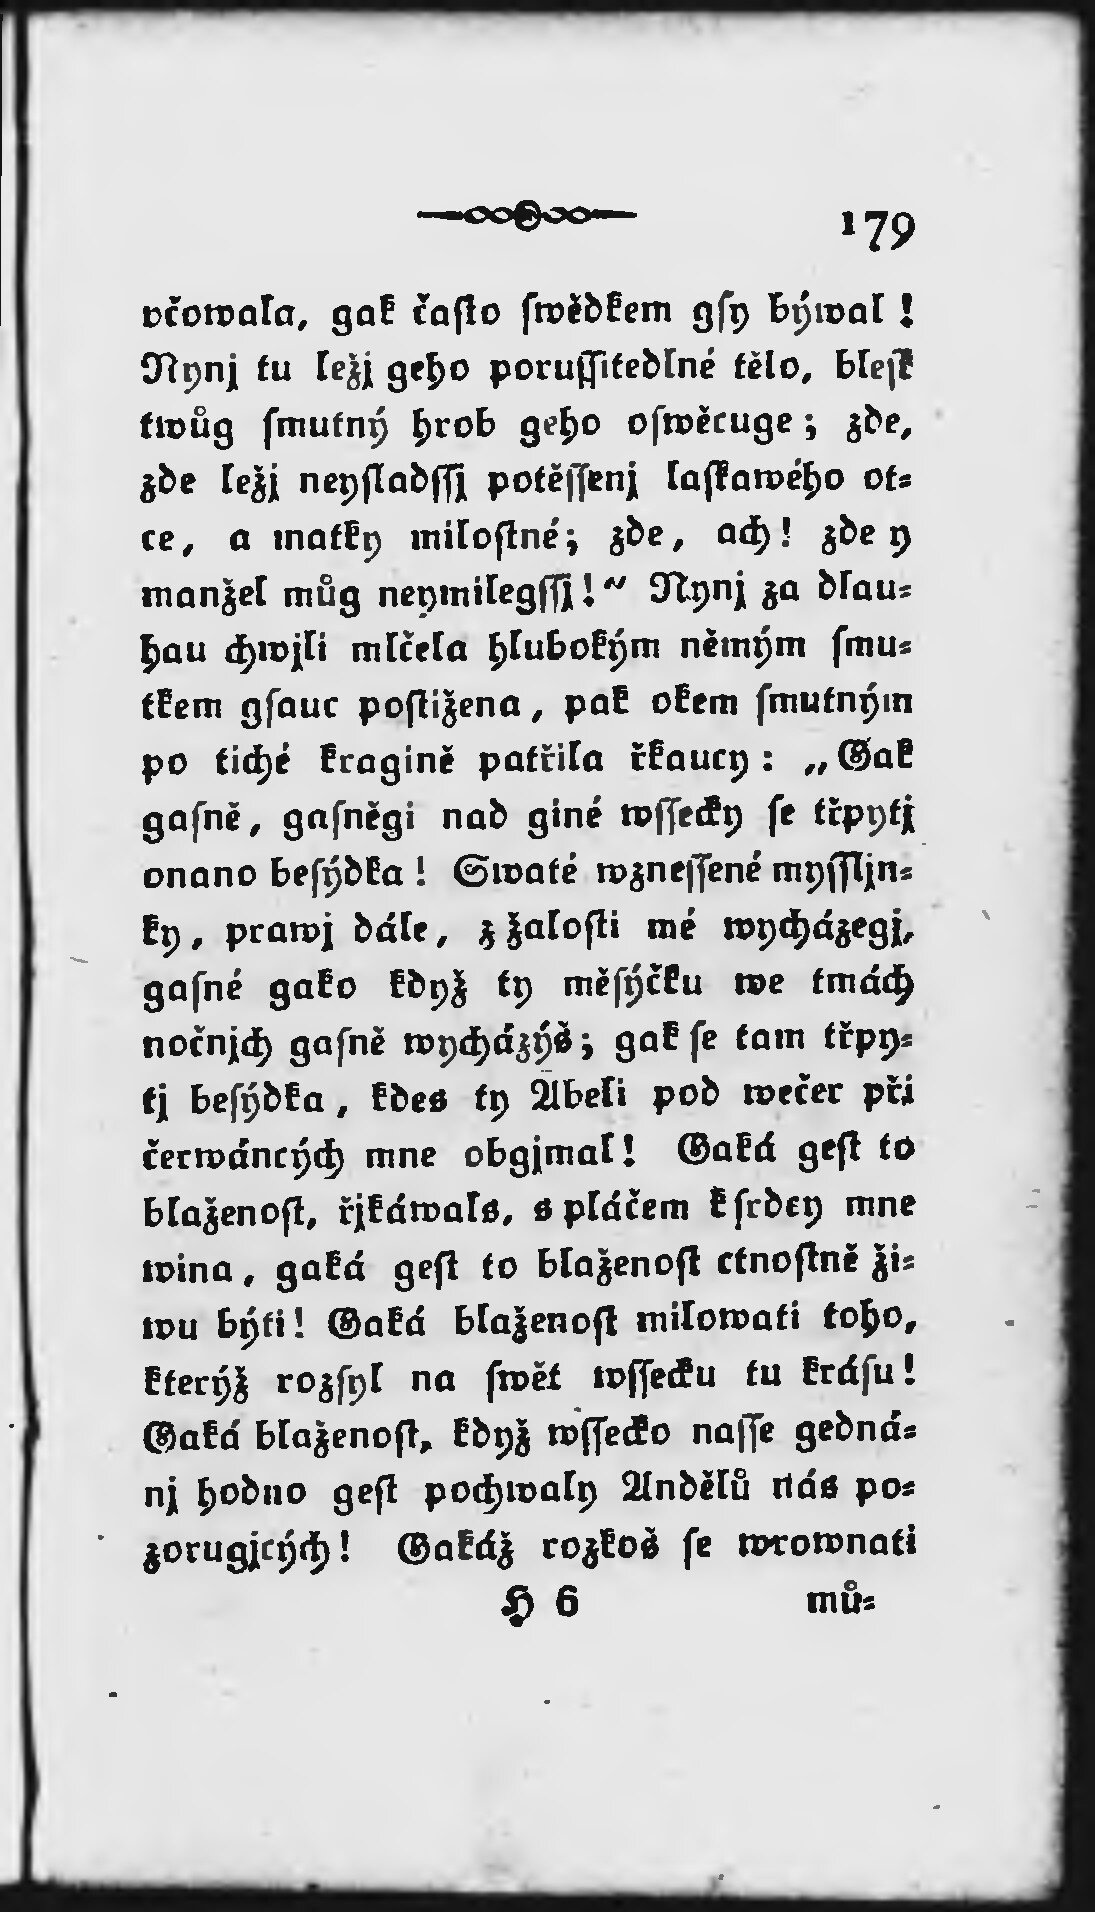 179
včowala, gak čaſto ſwědkem gſy býwal!
Nynj tu ležj geho poruſſitedlné tělo, bleſk
twůg ſmutný hrob geho oſwěcuge; zde,
zde ležj neyſladſſj potěſſenj laſkawého ot⸗
ce, a matky miloſtné; zde, ach! zde y
manžel můg neymilegſſj!“ Nynj za dlau⸗
hau chwjli mlčela hlubokým němým ſmu⸗
tkem gſauc poſtižena, pak okem ſmutným
po tiché kragině patřila řkaucy: „Gak
gaſně, gaſněgi nad giné wſſecky ſe třpytj
onano beſýdka! Swaté wzneſſené myſſljn⸗
ky, prawj dále, z žaloſti mé wycházegj,
gaſné gako když ty měſýčku we tmách
nočnjch gaſně wycházýš; gak ſe tam třpy⸗
tj beſýdka, kdes ty Abeli pod wečer při
čerwáncých mne obgjmal! Gaká geſt to
blaženoſt, řjkáwals, s pláčem k ſrdcy mne
wina, gaká geſt to blaženoſt ctnoſtně ži⸗
wu býti! Gaká blaženoſt milowati toho,
kterýž rozſyl na ſwět wſſecku tu kráſu!
Gaká blaženoſt, když wſſecko naſſe gedná⸗
nj hodno geſt pochwaly Andělů nás po⸗
zorugjcých! Gakáž rozkoš ſe wrownati
H 6 mů⸗